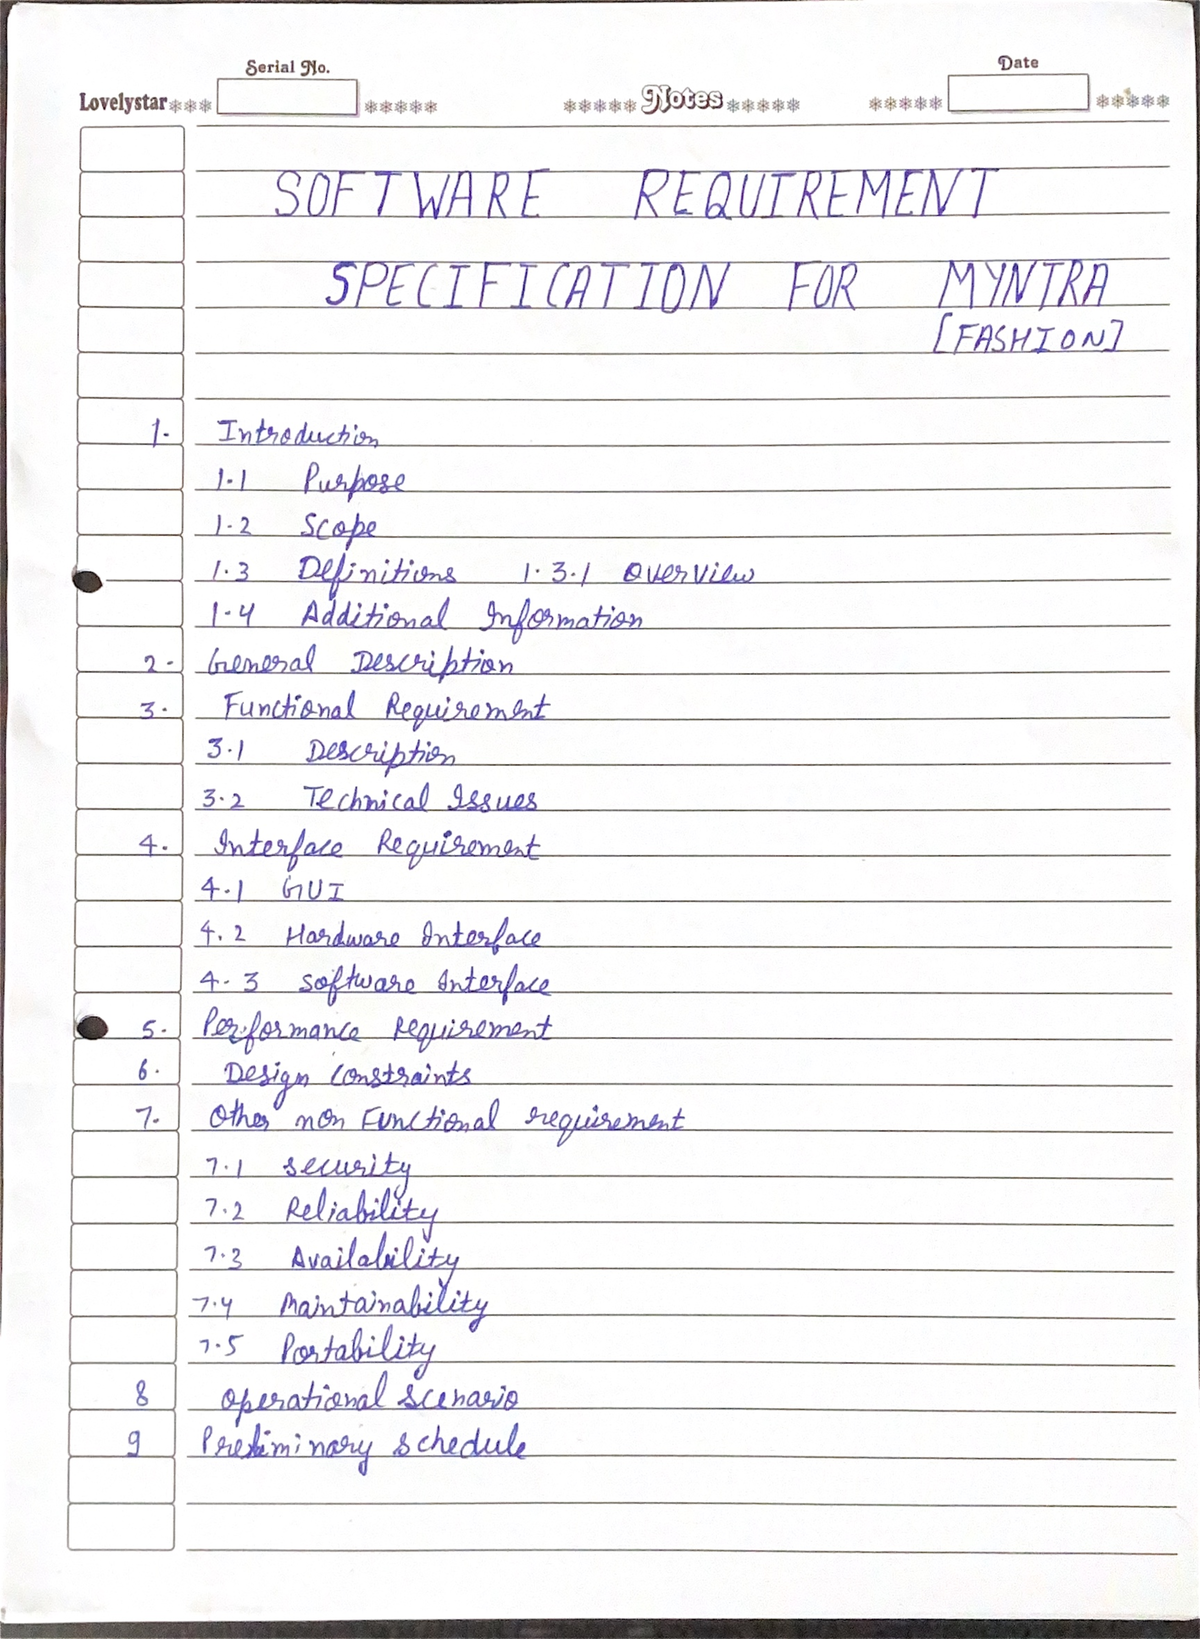 Serial No.
Date
Lovelystar
Notes
SOFTWARE REQUIREMENT
SPECIFICATION FOR MYNTRA
[FASHION]
1. Introduction
1.1 Purpose
1.2 Scope
1.3 Definitions 1.3.1 Overview
1.4 Additional Information
2. General Description
3. Functional Requirement
3.1 Description
3.2 Technical Issues
4. Interface Requirement
4.1 GUI
4.2 Hardware Interface
4.3 Software Interface
5. Performance Requirement
6. Design Constraints
7. Other non Functional requirement
7.1 Security
7.2 Reliability
7.3 Availability
7.4 Maintainability
7.5 Portability
8 Operational Scenario
9 Preliminary Schedule